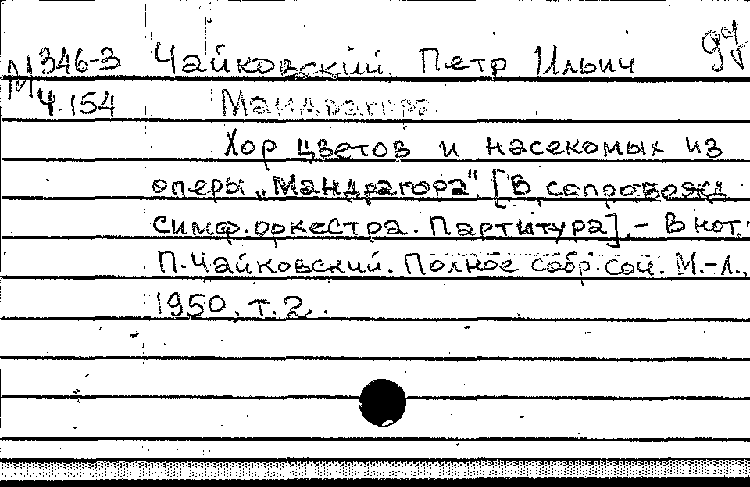 М 346-3 Чайковский Петр Ильич
Ч.154 Мандрагора
Хор цветов и насекомых из
оперы „Мандрагора" [В сопровожд.
симф. оркестра. Партитура]. - В кн.:
П. Чайковский. Полное собр. соч. М.-Л.,
1950, т. 2.